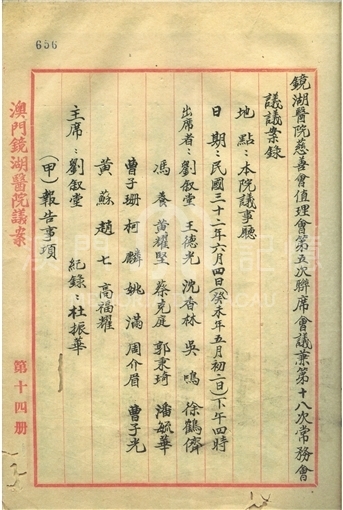 656
鏡湖醫院慈善會值理會第五次聯席會議兼第十八次常務會
議議案錄
地點：本院議事廳
日期：民國三十二年六月四日（癸未年五月初二日）下午四時
出席者：劉敘堂 王德光 沈香林 吳鳴 徐鶴儕
馮養 黃耀堅 蔡克庭 郭秉琦 潘毓華
曾子珊 柯麟 姚滿 周介眉 曹子光
黃蘇 趙七 高福耀
主席：劉敘堂 紀錄：杜振華
（甲）報告事項
澳門鏡湖醫院議案 第十四册